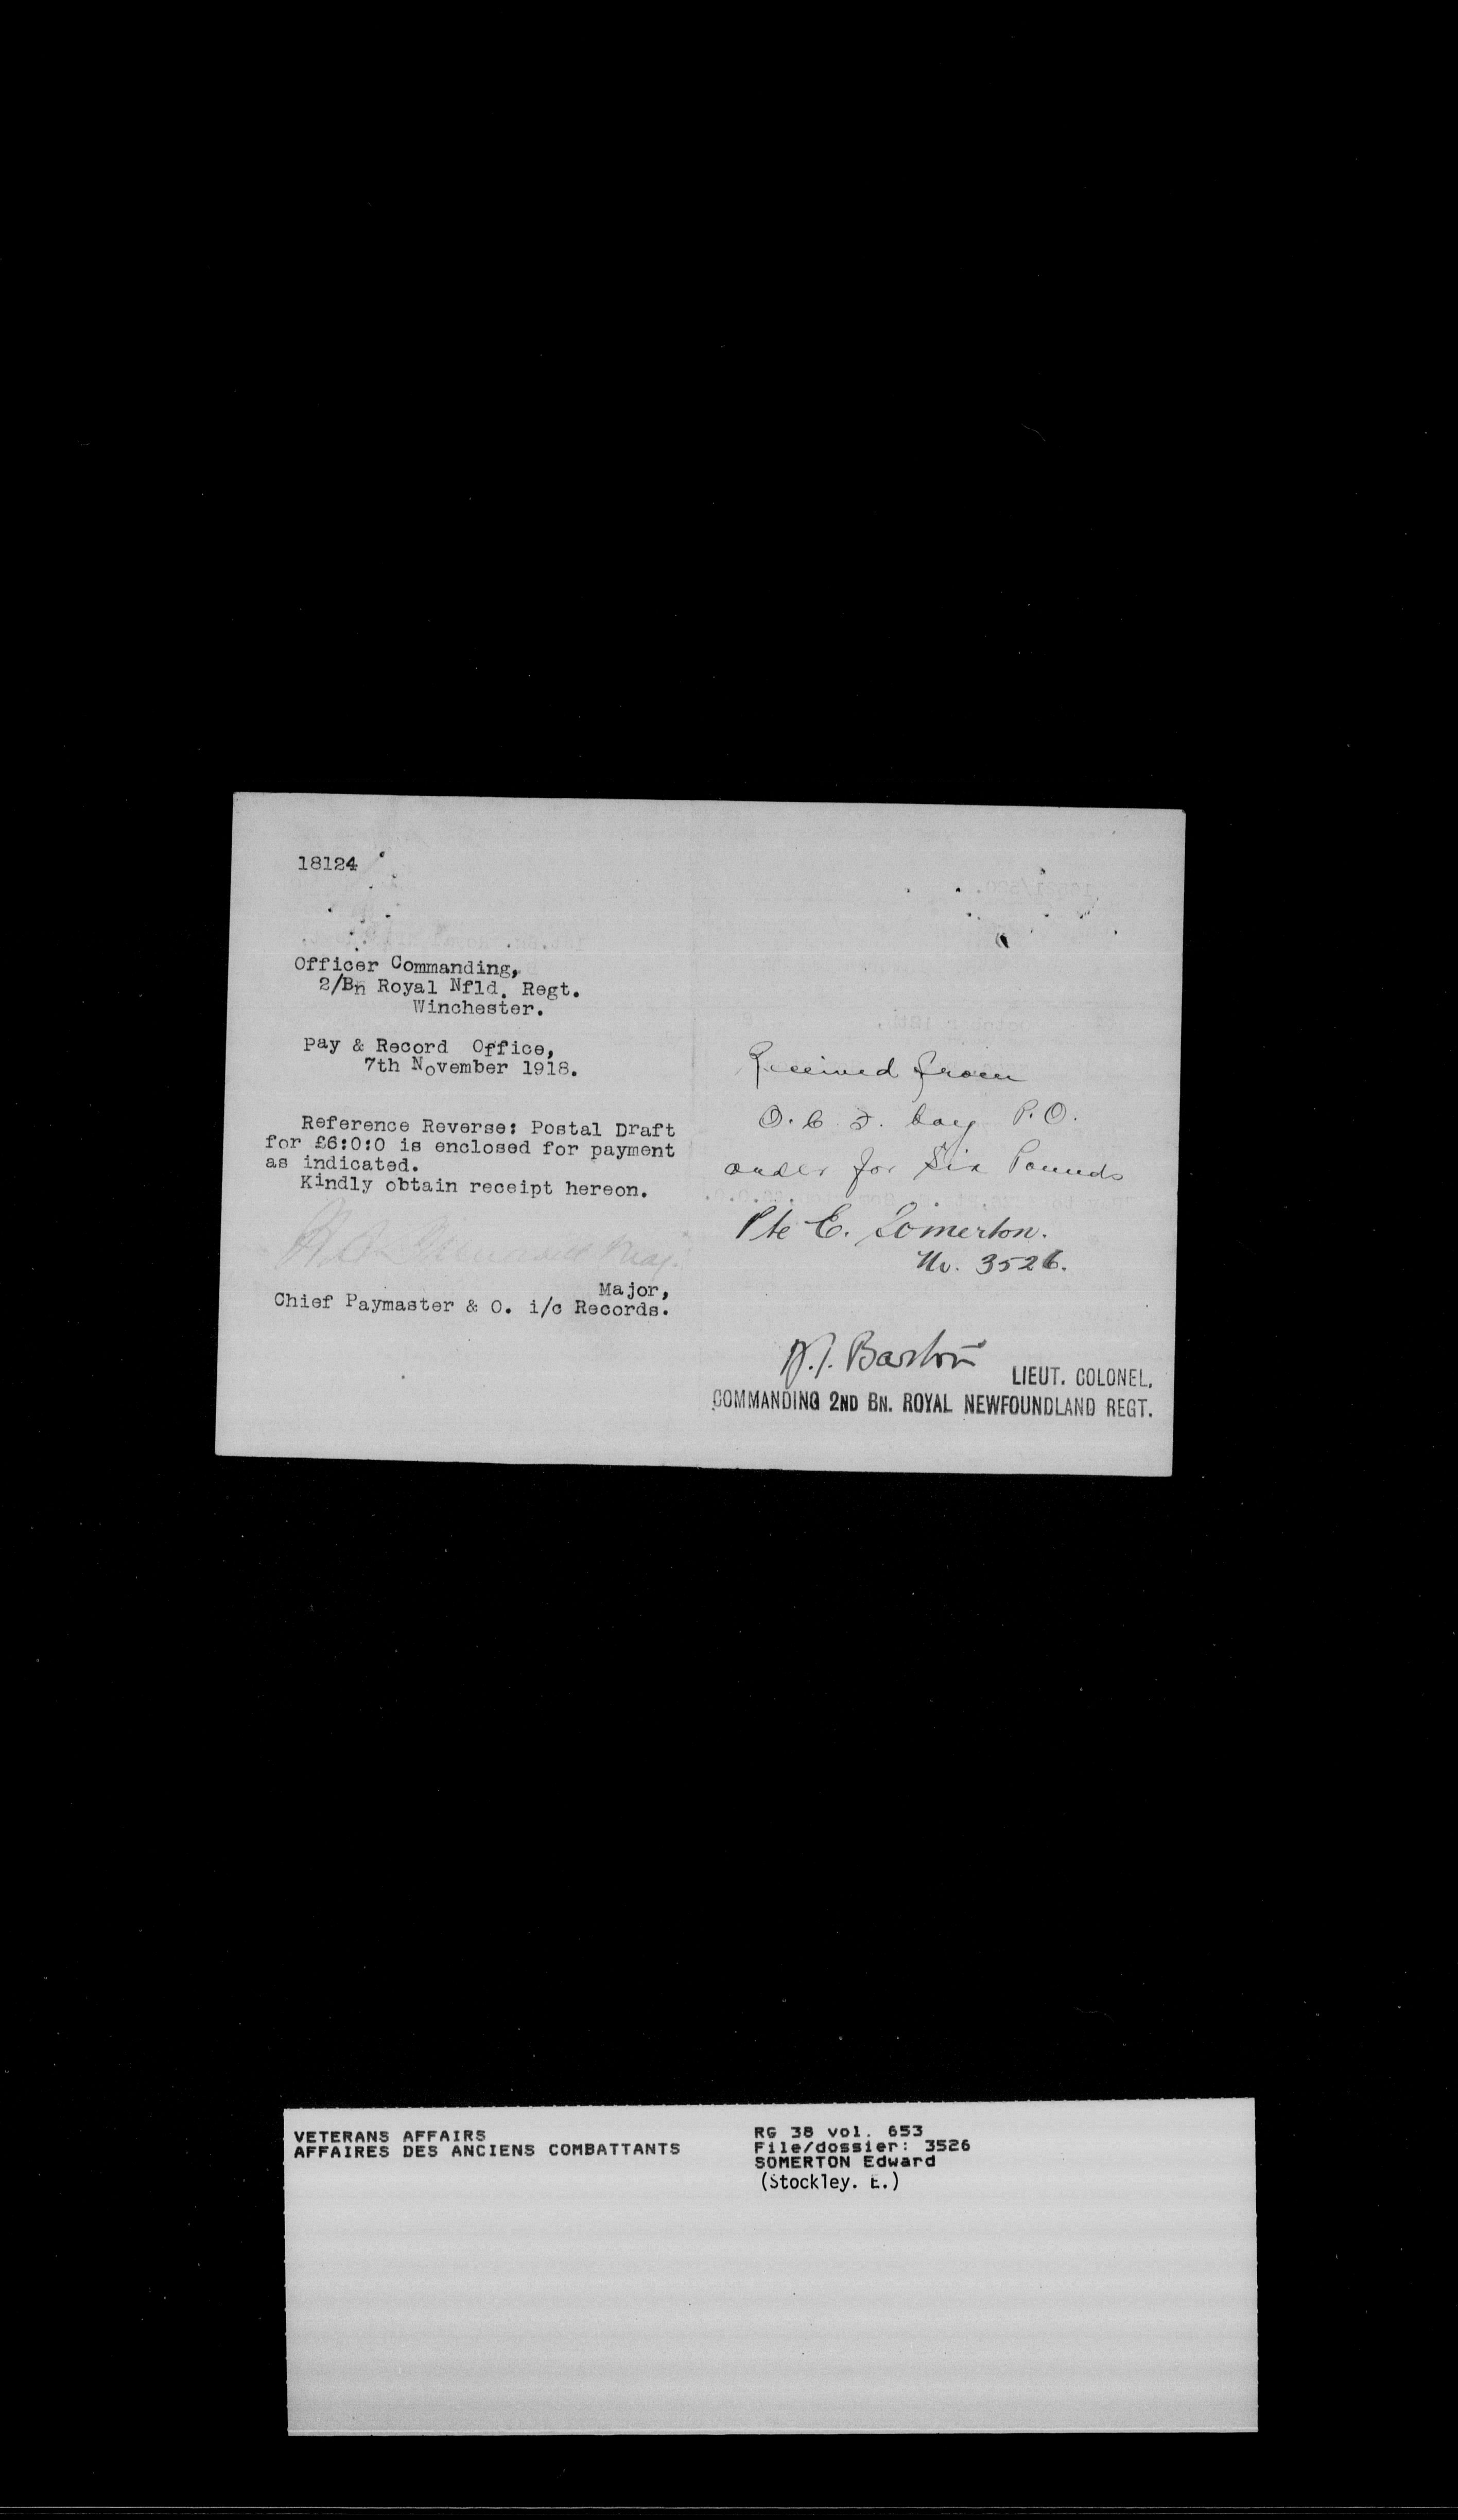 18124
Officer Commanding,
2/Bn Royal Nfld. Regt.
Winchester.
Pay & Record Office,
7th November 1918.
Reference Reverse: Postal Draft
for £6:0:0 is enclosed for payment
as indicated.
Kindly obtain receipt hereon.
Major,
Chief Paymaster & O. i/c Records.
Received from
O. C. Coy P.O.
order for Six Pounds
Pte E. Somerton.
No. 3526.
Barton
LIEUT. COLONEL.
COMMANDING 2ND BN. ROYAL NEWFOUNDLAND REGT.
VETERANS AFFAIRS
AFFAIRES DES ANCIENS COMBATTANTS
RG 38 vol. 653
File/dossier: 3526
SOMERTON Edward
(Stockley. E.)